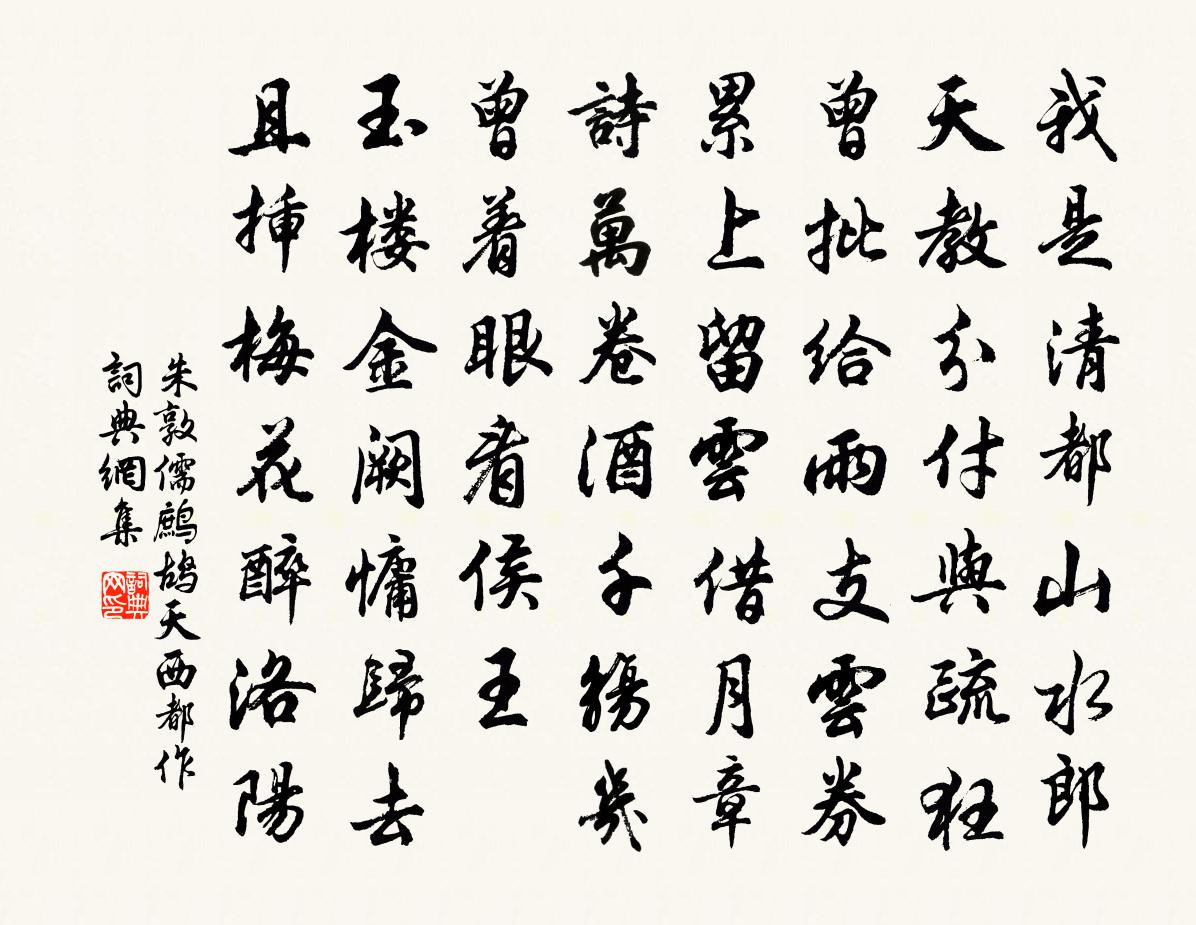 我是清都山水郎
天教分付與疏狂
曾批給雨支雲券
累上留雲借月章
詩萬卷酒千觴幾
曾着眼看侯王
玉楼金闕慵歸去
且插梅花醉洛陽
朱敦儒鷓鴣天西都作
詞典網集
詞典网印